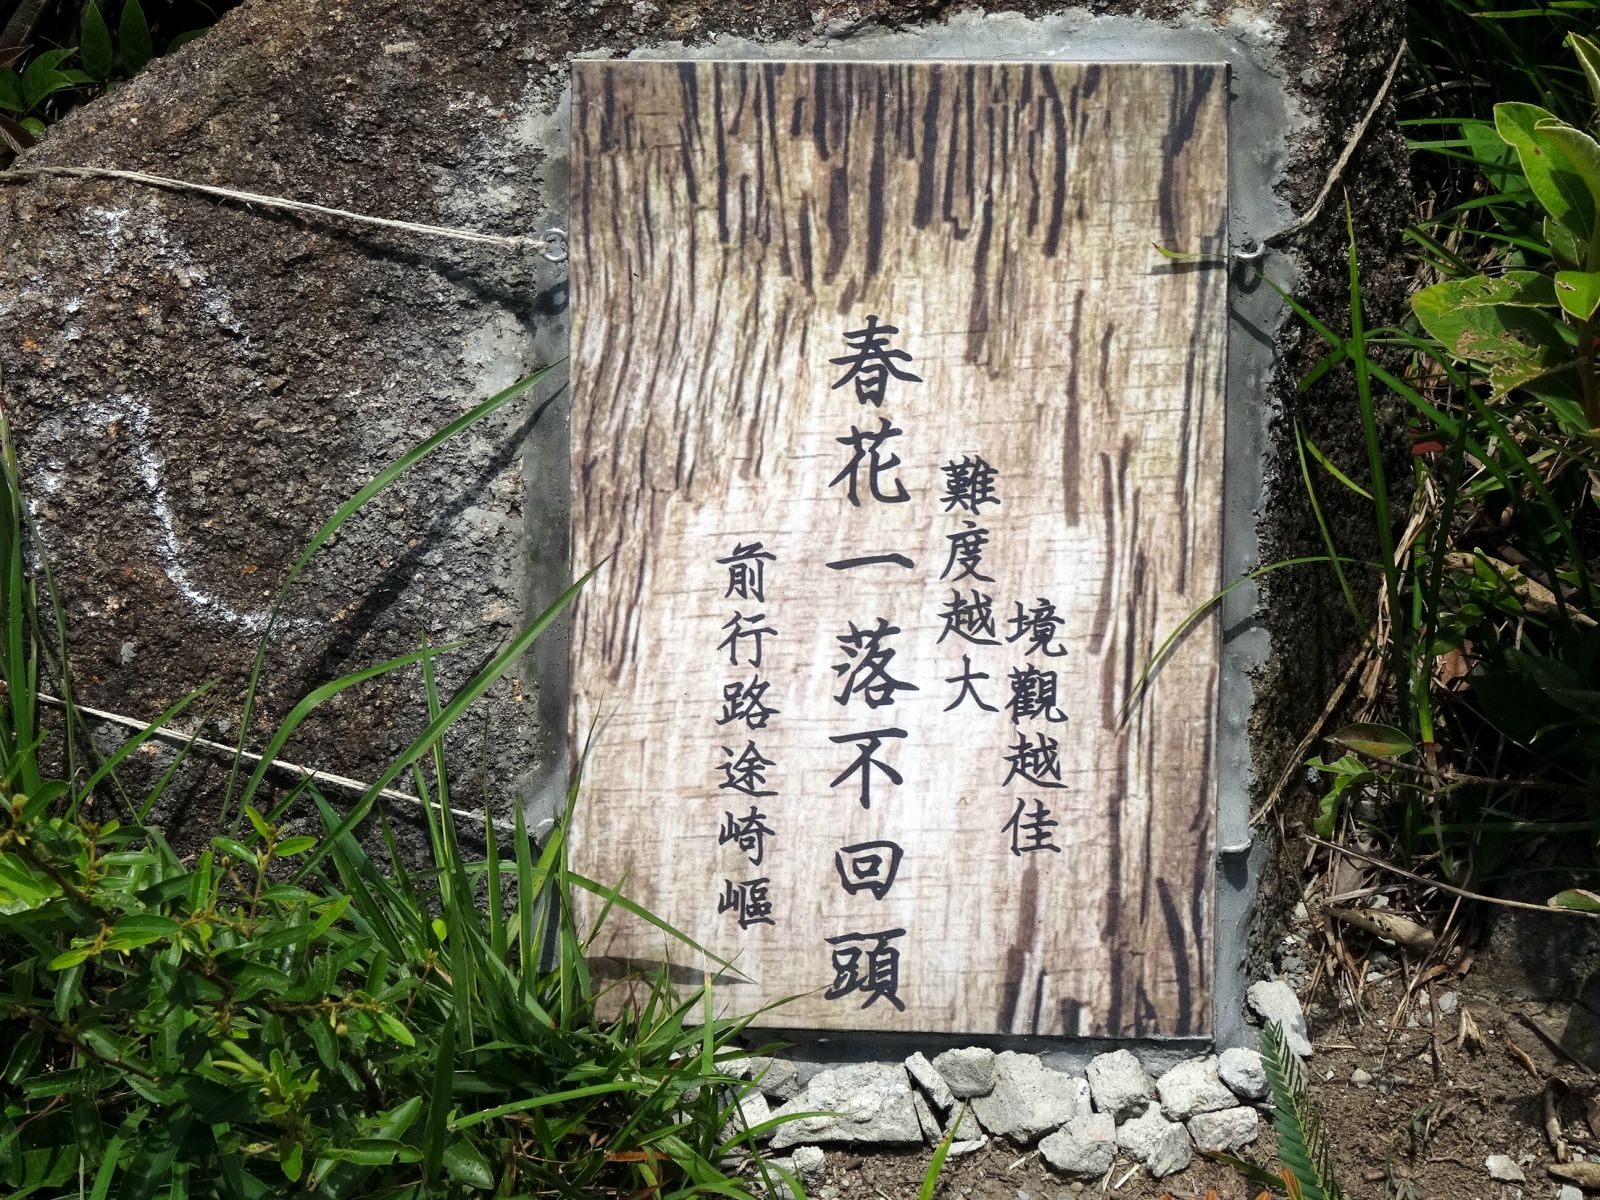 境觀越佳
難度越大
春花一落不回頭
前行路途崎嶇